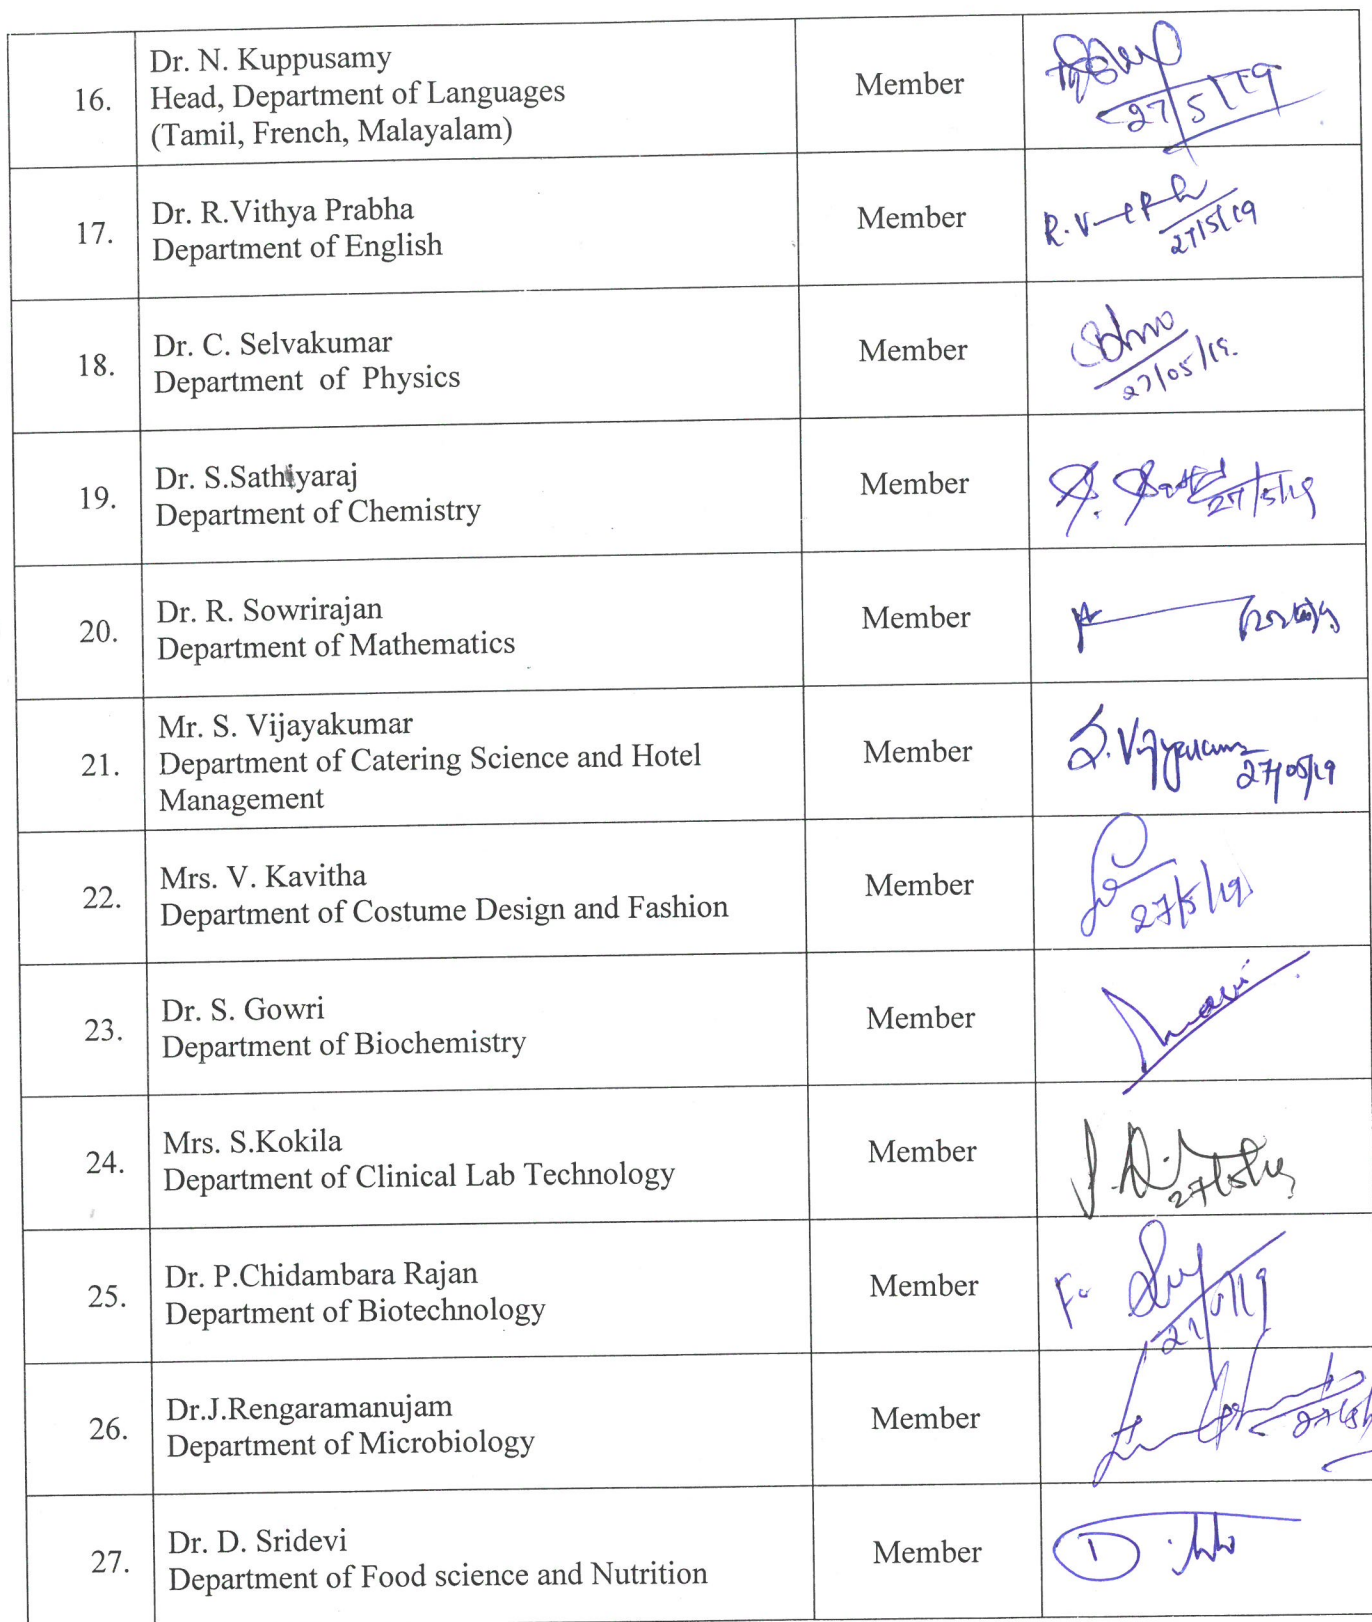 16.
Dr. N. Kuppusamy
Head, Department of Languages
(Tamil, French, Malayalam)
Member
27/5/19
17.
Dr. R.Vithya Prabha
Department of English
Member
27/5/19
18.
Dr. C. Selvakumar
Department of Physics
Member
27/05/19.
19.
Dr. S.Sathiyaraj
Department of Chemistry
Member
27/5/19
20.
Dr. R. Sowrirajan
Department of Mathematics
Member
21.
Mr. S. Vijayakumar
Department of Catering Science and Hotel
Management
Member
27/05/19
22.
Mrs. V. Kavitha
Department of Costume Design and Fashion
Member
27/5/19
23.
Dr. S. Gowri
Department of Biochemistry
Member
24.
Mrs. S.Kokila
Department of Clinical Lab Technology
Member
27/5/19
25.
Dr. P.Chidambara Rajan
Department of Biotechnology
Member
26.
Dr.J.Rengaramanujam
Department of Microbiology
Member
27.
Dr. D. Sridevi
Department of Food science and Nutrition
Member